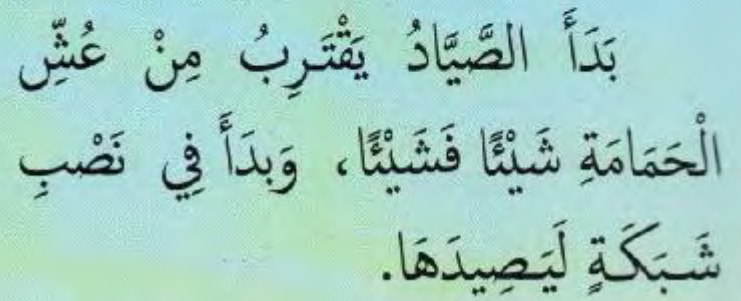 بَدَأَ الصَّيَّادُ يَقْتَرِبُ مِنْ عُشِّ
الْحَمَامَةِ شَيْئًا فَشَيْئًا، وَبدَأَ فِي نَصْبِ
شَبَكَةٍ لَيَصِيدَهَا.